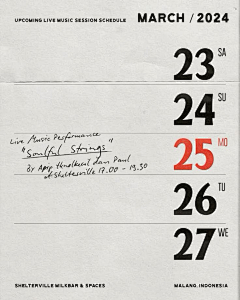 UPCOMING LIVE MUSIC SESSION SCHEDULE
MARCH / 2024
23 SA
24 SU
25 MO
Live Music Performance
"Soulful Strings"
By Apip dan Paul
at Sheltersville 17.00 - 19.30
26 TU
27 WE
SHELTERVILLE MILKBAR & SPACES
MALANG, INDONESIA